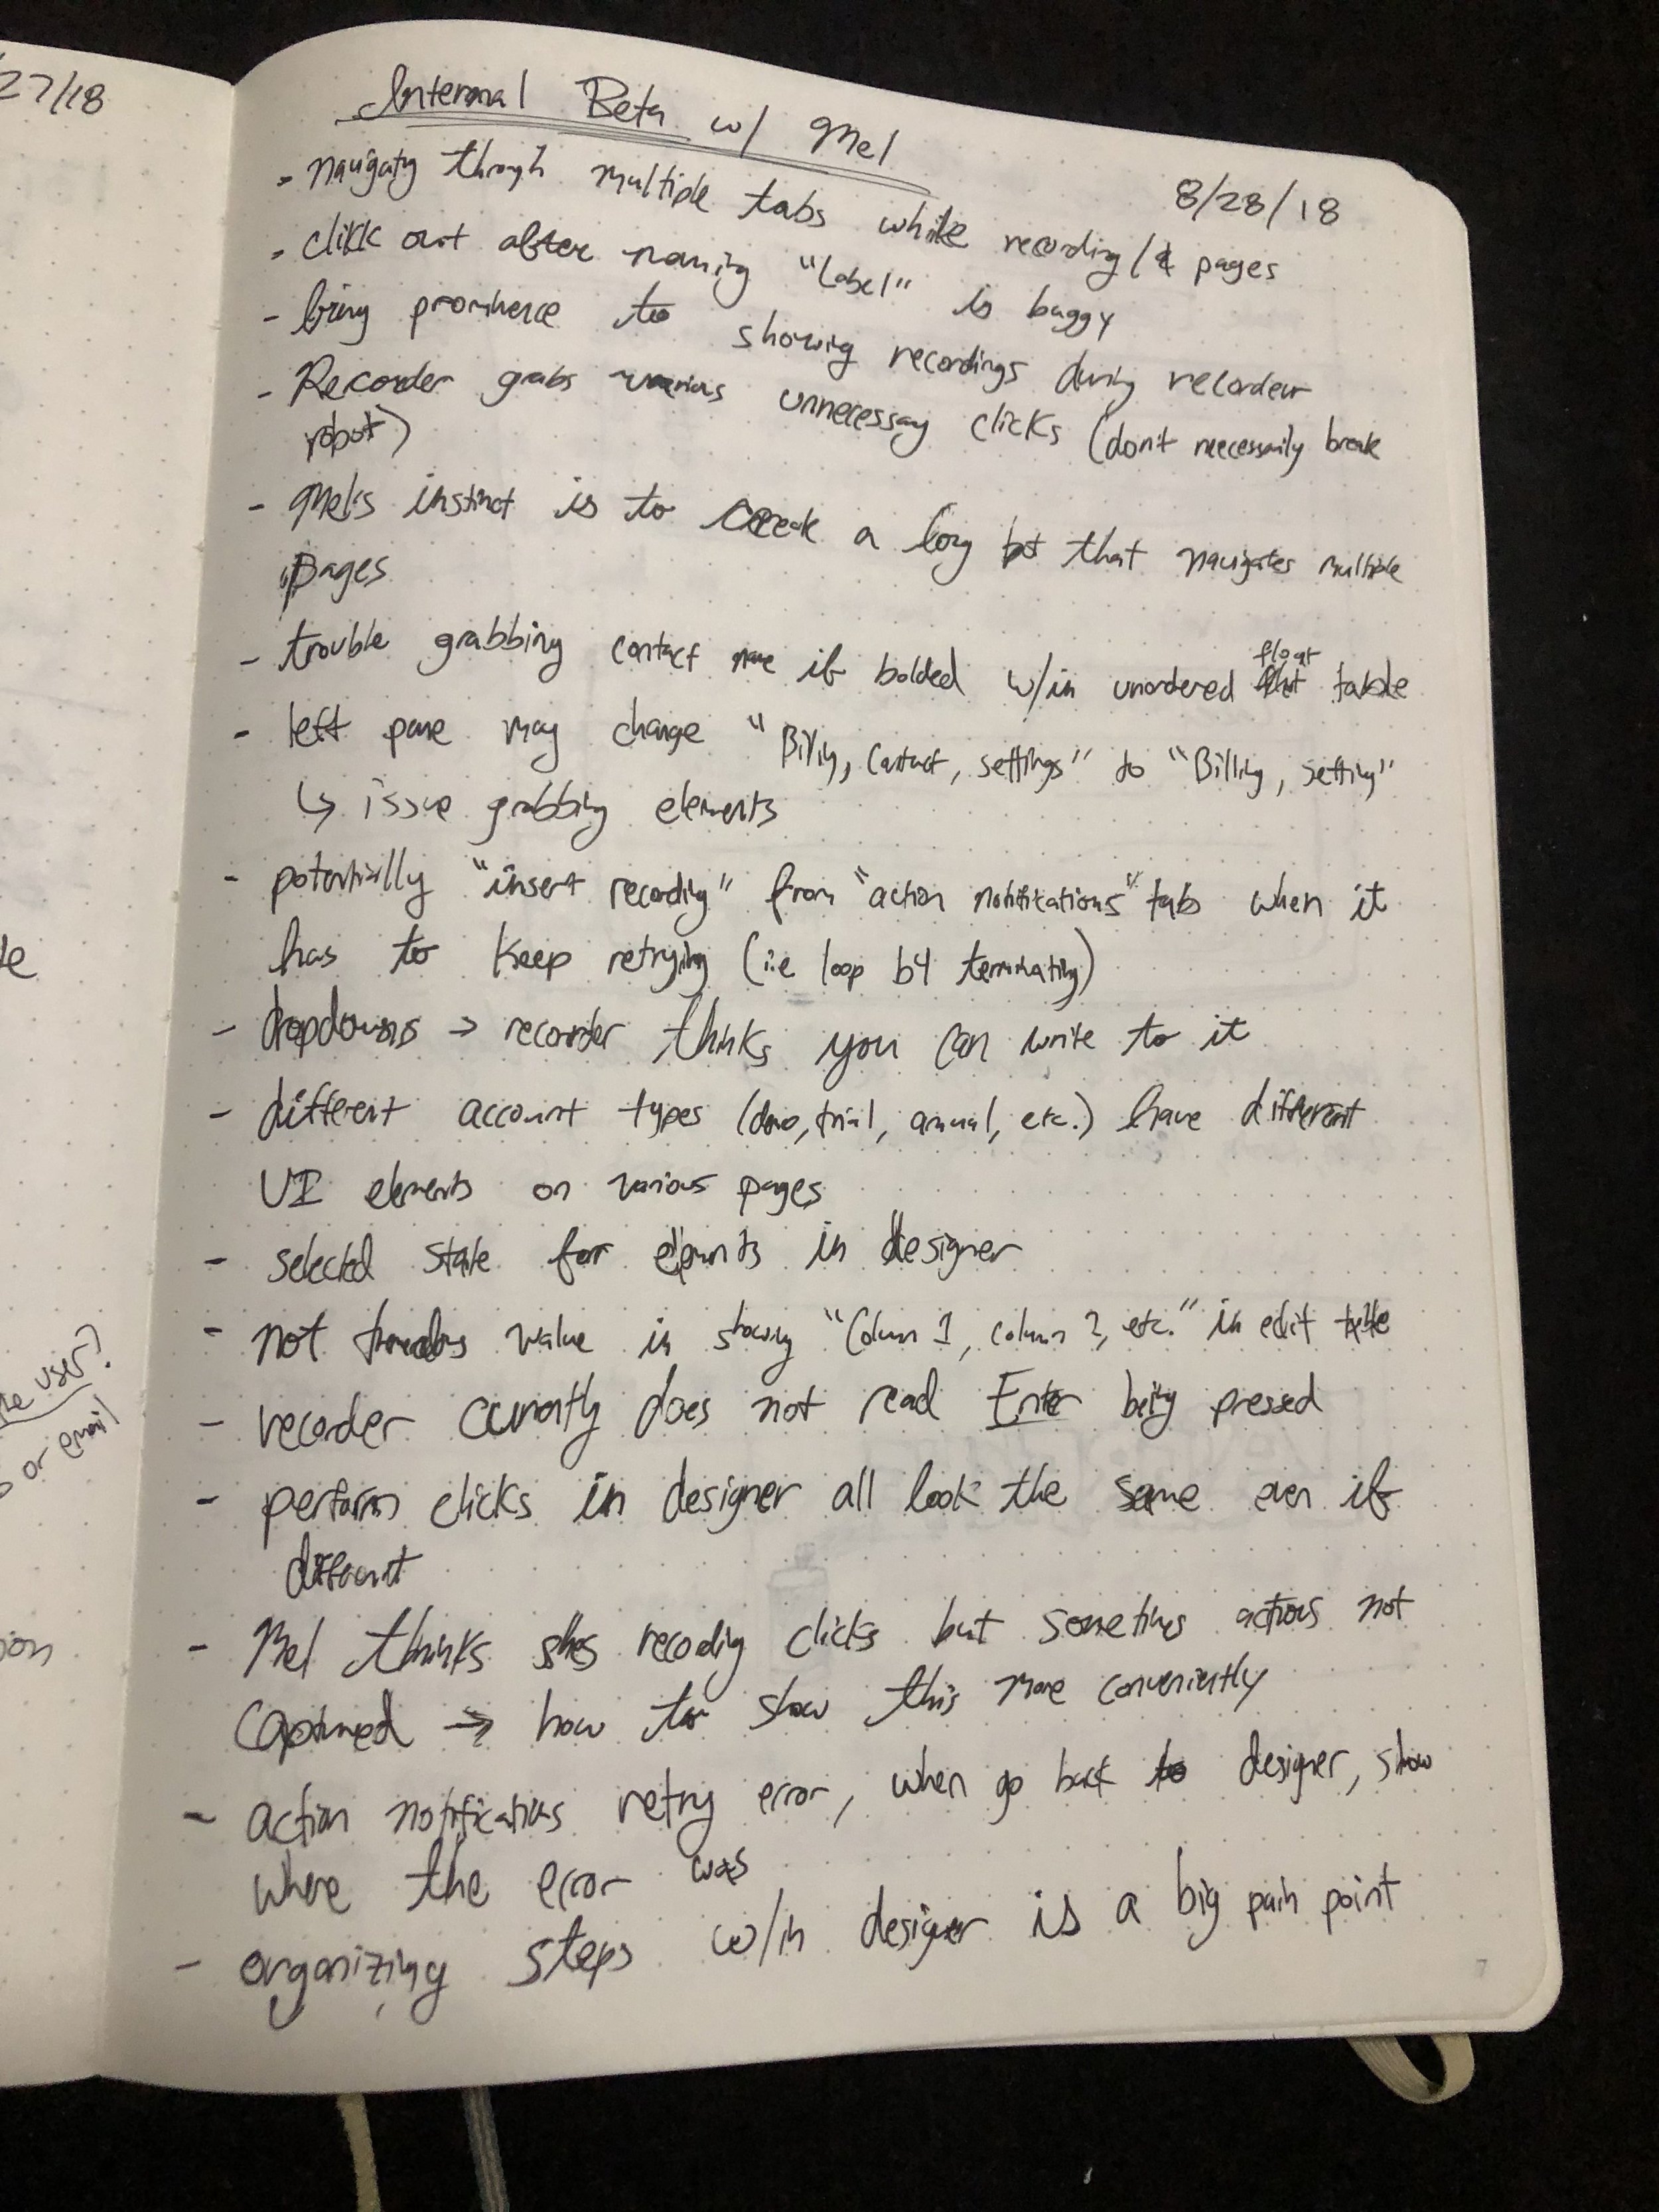 27/18
Internal Beta w/ Mel
8/28/18
- navigaty through multiple tabs while recording / & pages
- click out after naming "Label" is buggy
- bring prominence to showing recordings during recorder
- Recorder grabs various unnecessay clicks (don't neccessarily break
robot)
- Mel's instinct is to create a long bot that navigates multiple
pages
- trouble grabbing contact name if bolded w/in unordered float table
- left pane may change "Billing, Contact, settings" to "Billing, setting"
↳ issue grabbing elements
- potentially "insert recording" from "action notifications" tab when it
has to keep retrying (i.e loop b4 terminating)
- dropdowns → recorder thinks you can write to it
- different account types (demo, trial, annual, etc.) have different
UI elements on various pages
- selected state for elements in designer
- not tremendous value in showing "Column 1, column 2, etc." in edit table
- recorder currently does not read Enter being pressed
- perform clicks in designer all look the same even if
different
- Mel thinks shes recording clicks but sometimes actions not
captured → how to show this more conveniently
- action notifications retry error, when go back to designer, show
where the error was
- organizing steps w/in designer is a big pain point
7
user?
or email